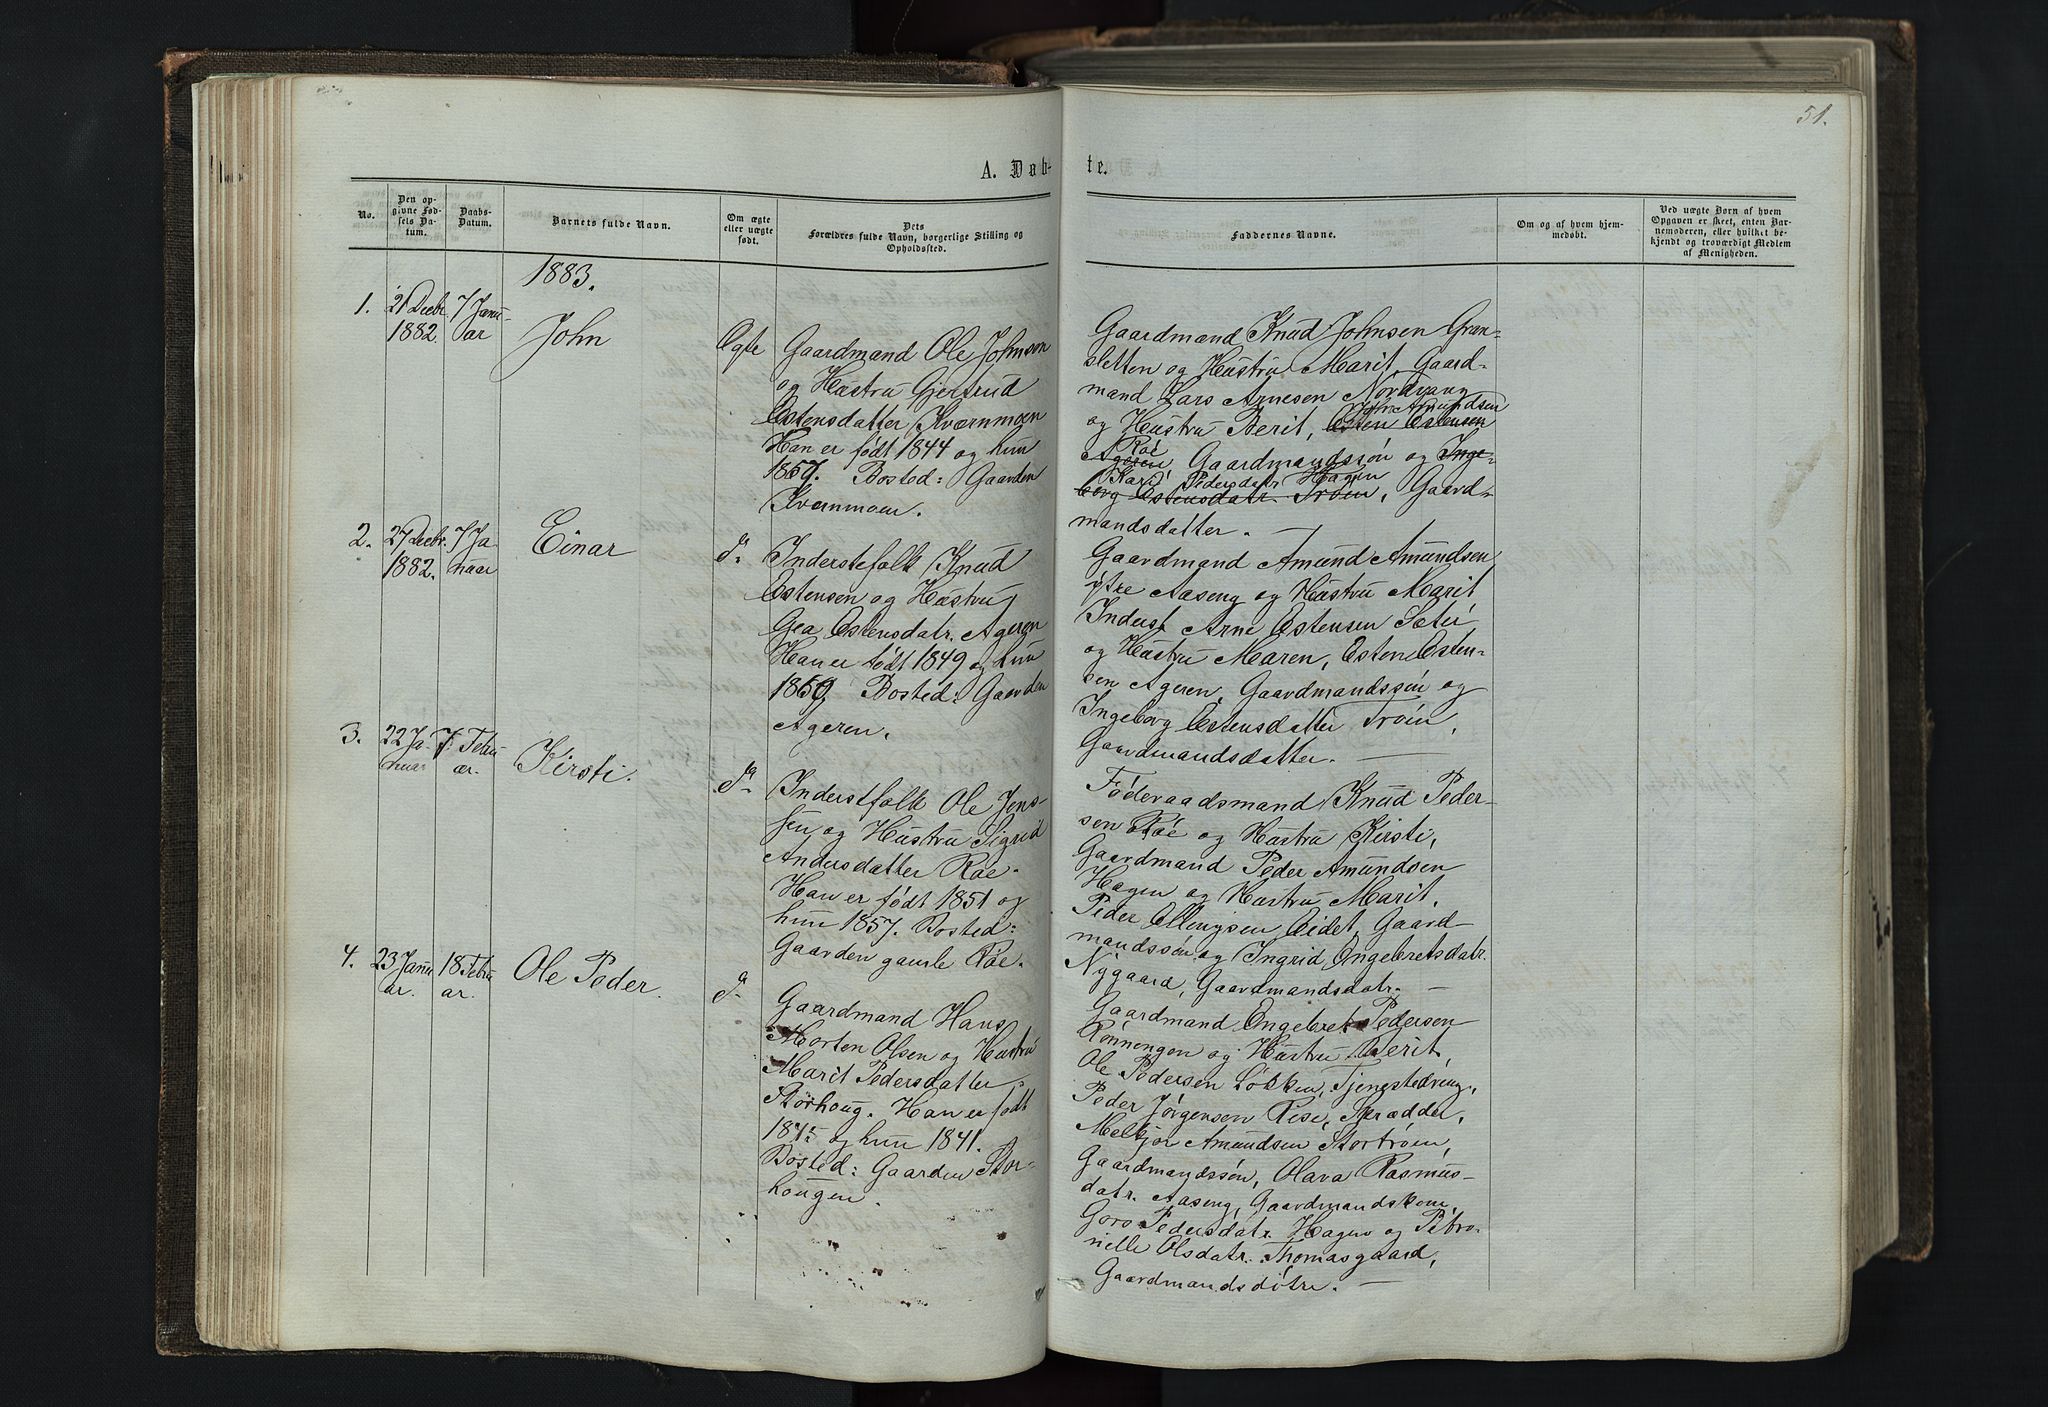 51.
A. Døb-
te.
No.
Den op-
givne Fød-
sels Da-
tum.
Daabs-
Datum.
Barnets fulde Navn.
Om ægte
eller uægte
født.
Dets
Forældres fulde Navn, borgerlige Stilling og
Opholdssted.
Faddernes Navne.
Om og af hvem hjem-
medøbt.
Ved uægte Børn af hvem
Opgaven er skeet, enten Bar-
nemoderen, eller hvilket be-
kjendt og troværdigt Medlem
af Menigheden.
1883.
1.
21 Decbr.
1882.
7 Janu-
ar
John
Ægte
Gaardmand Ole Johnsen
og Hustru Gjertrud
Estensdatter Kværnmoen
Han er født 1844 og hun
1857. Bosted: Gaarden
Kvernmoen.
Gaardmand Knud Johnsen Gran-
sletten og Hustru Marit, Gaard-
mand Lars Arnesen Nordvang
John Amundsen
og Hustru Berit, Esten Estensen
Røe
Ageren, Gaardmandssøn og Inge-
Kari Pedersdatr. Hagen
borg Estensdatr. Trøen, Gaard-
mandsdatter. —
2.
27 Decbr.
1882.
7 Ja-
nuar
Einar
do
Inderstefolk Knud
Estensen og Hustru
Gea Estensdatr. Ageren
Han er født 1849 og hun
1859. Bosted: Gaarden
Ageren.
Gaardmand Amund Amundsen
østre Aaseng og Hustru Marit
Inderst Arne Estensen Sæter
og Hustru Maren, Esten Esten-
sen Ageren, Gaardmandssøn og
Ingeborg Estensdatter Trøen,
Gaardmandsdatter. —
3.
22 Ja-
nuar
7 Febru
ar.
Kirsti.
do
Inderstfolk Ole Jens-
sen og Hustru Sigrid
Andersdatter Røe.
Han er født 1851 og
hun 1857. Bosted:
Gaarden gamle Røe.
Føderaadsmand Knud Peder-
sen Røe og Hustru Kirsti,
Gaardmand Peder Amundsen
Hagen og Hustru Marit,
Peder Ellingsen Eidet, Gaard-
mandssøn og Ingrid Engebretsdatr.
Nygaard, Gaardmandsdatr. —
4.
23 Janu
ar.
18 Febru
ar.
Ole Peder.
do
Gaardmand Hans
Morten Olsen og Hustru
Marit Pedersdatter
Storhoug. Han er født
og hun 1841.
Bosted: Gaarden Stor-
hougen.
Gaardmand Engebret Pedersen
Rønningen og Hustru Berit,
Ole Pedersen Løkken, Tjenstedreng,
Peder Jørgensen Rise, Skrædder,
Melkjor Amundsen Stortrøen,
Gaardmandssøn, Olava Rasmus-
datr. Aaseng, Gaardmandskone,
Goro Pedersdatr. Hagen og Petro-
nelle Olsdatr. Thomasgaard,
Gaardmandsdøtre. —